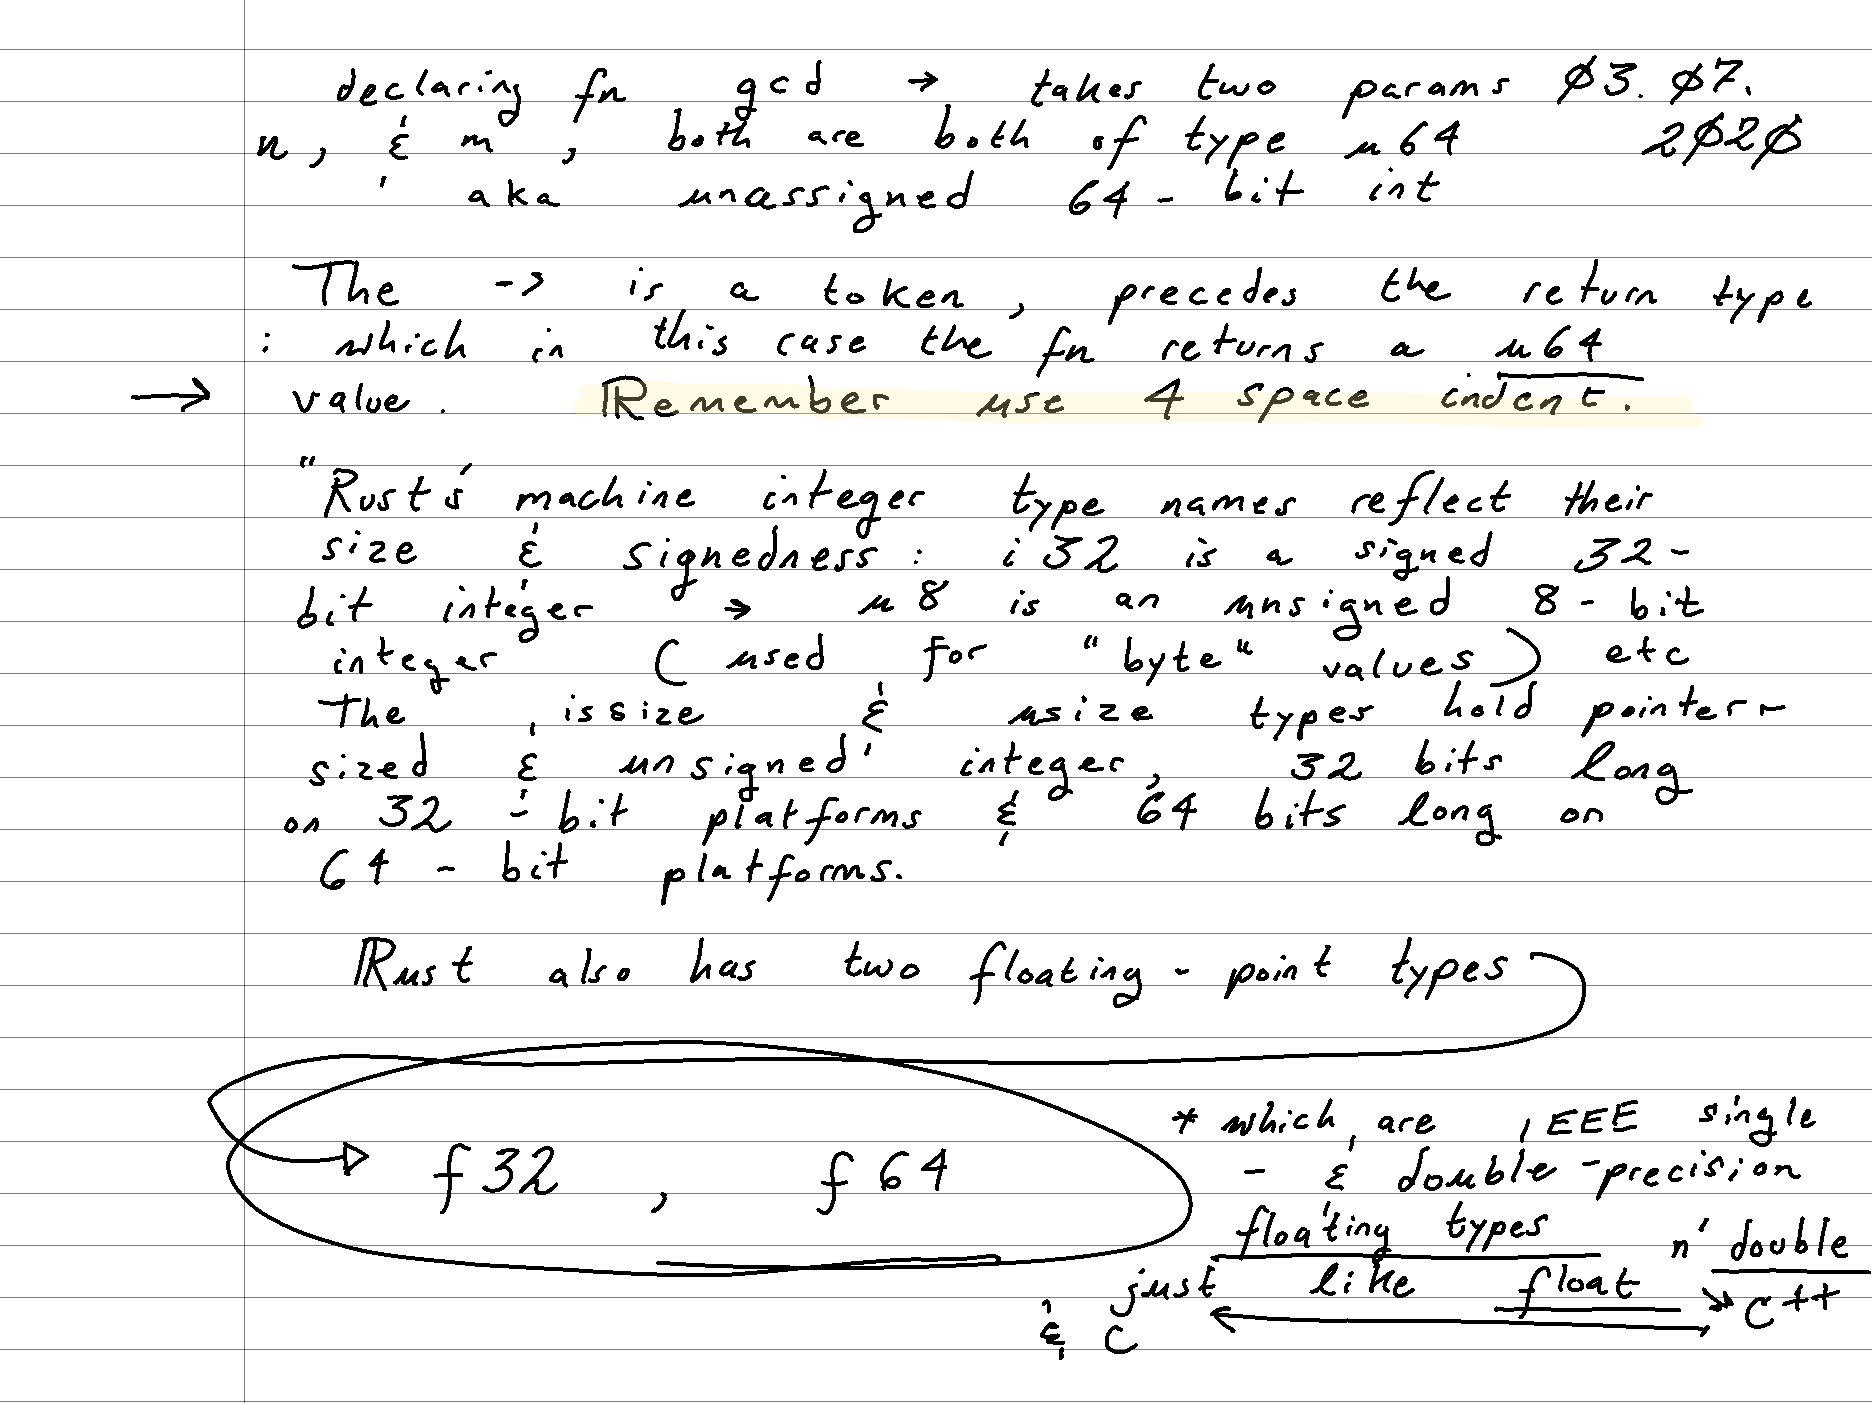 declaring fn gcd → takes two params Ø3. Ø7.
n, & m, both are both of type u64 2Ø2Ø
aka unassigned 64 - bit int
The -> is a token, precedes the return type
: which in this case the fn returns a u64
→ value. Remember use 4 space indent.
"Rust's machine integer type names reflect their
size & signedness: i32 is a signed 32-
bit integer → u8 is an unsigned 8 - bit
integer (used for "byte" values) etc
The issize & usize types hold pointer-
sized & unsigned integer, 32 bits long
on 32 - bit platforms & 64 bits long on
64 - bit platforms.
Rust also has two floating - point types
f32, f64
* which are IEEE single
- & double -precision
floating types
just like float n' double
& C C++